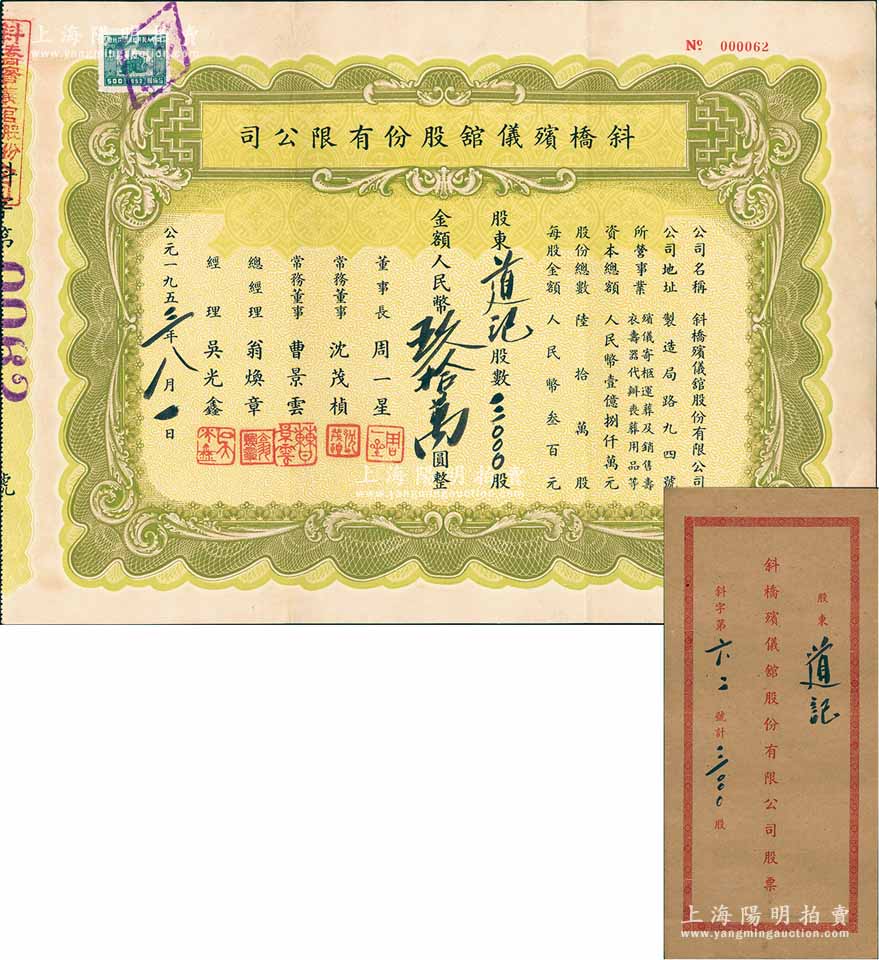 上海陽明拍賣
www.yangmingauction.com
№ 000062
500
斜橋殯儀舘股份有限公司
公司名稱 斜橋殯儀舘股份有限公司
公司地址 製造局路九四號
所營事業 殯儀寄柩運葬及銷售壽衣壽器代辦喪葬用品等
資本總額 人民幣壹億捌仟萬元
股份總數 陸拾萬股
每股金額 人民幣叁百元
股東 道記 股數 三000股
金額人民幣玖拾萬圓整
董事長 周一星
常務董事 沈茂楨
常務董事 曹景雲
總經理 翁煥章
經理 吳光鑫
公元一九五三年八月一日
斜字第
0062
號
上海陽明拍賣
www.yangmingauction.com
股東 道記
斜橋殯儀舘股份有限公司股票
斜字第六二號計三000股
上海陽明拍賣
www.yangmingauction.com